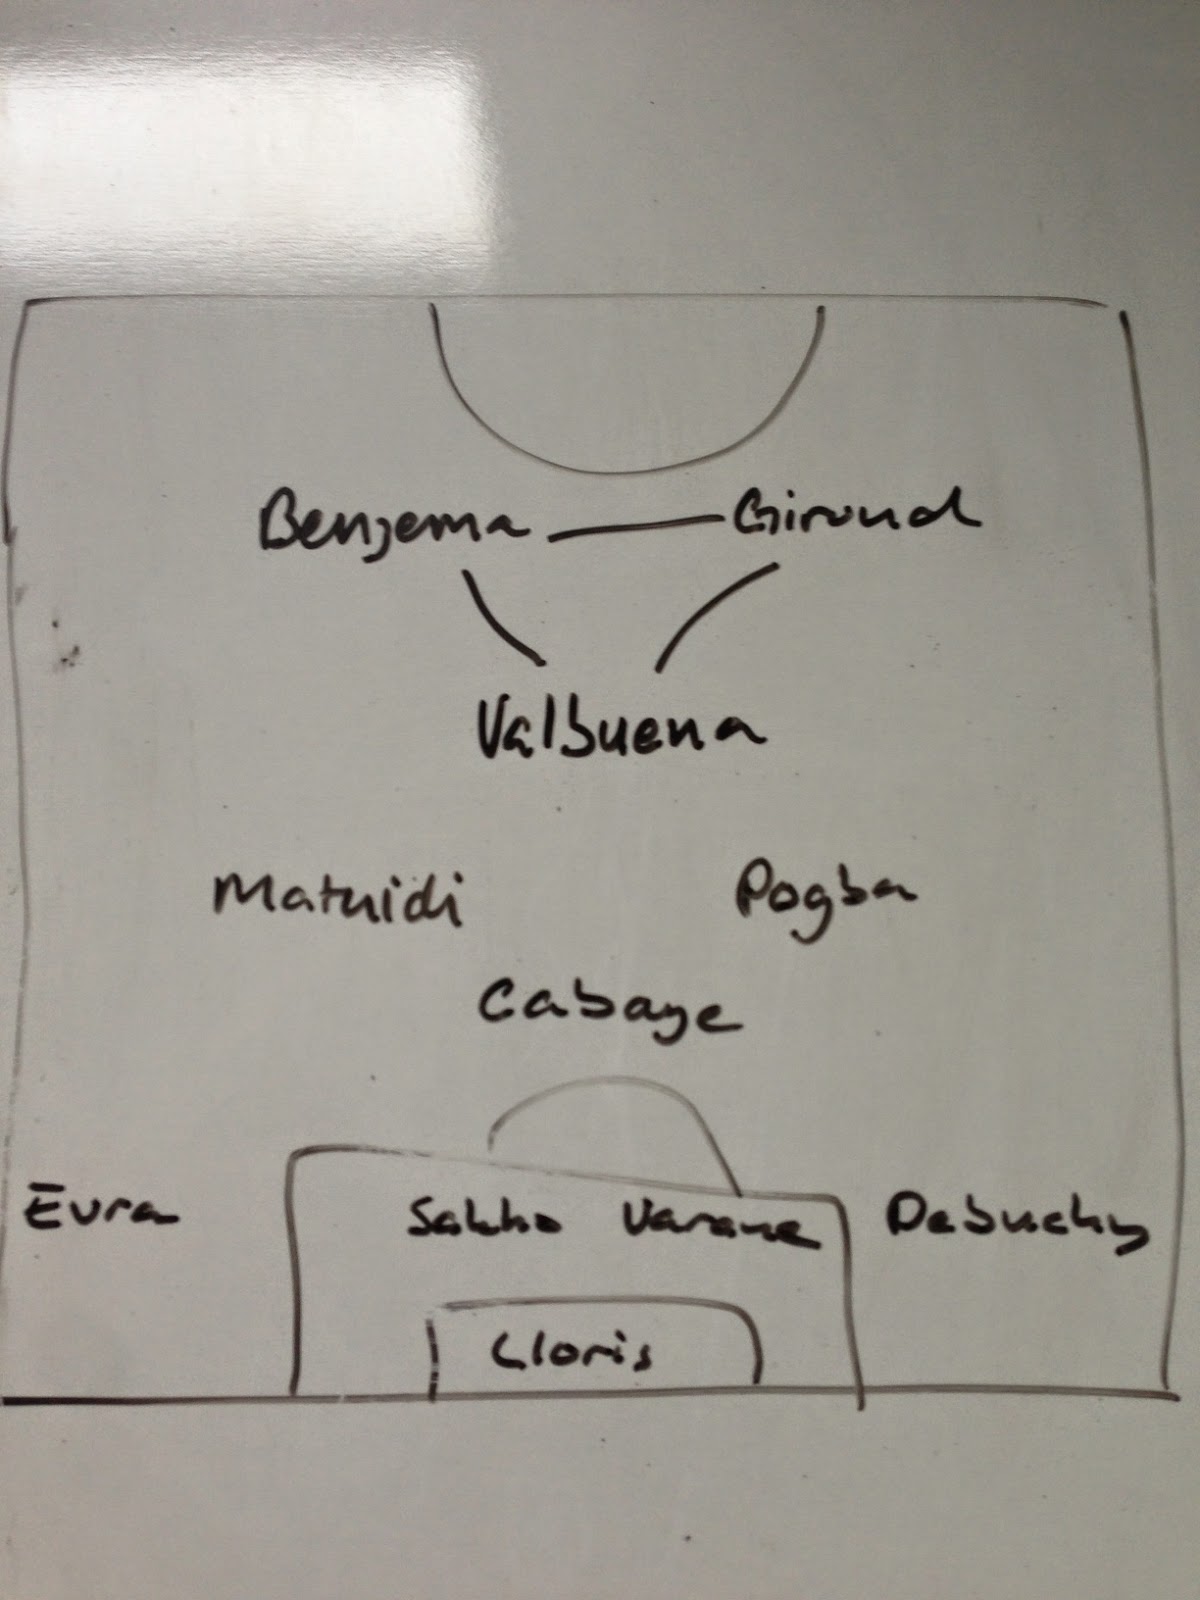 Benzema Giroud
Valbuena
Matuidi Pogba
Cabaye
Evra Sakho Varane Debuchy
Lloris